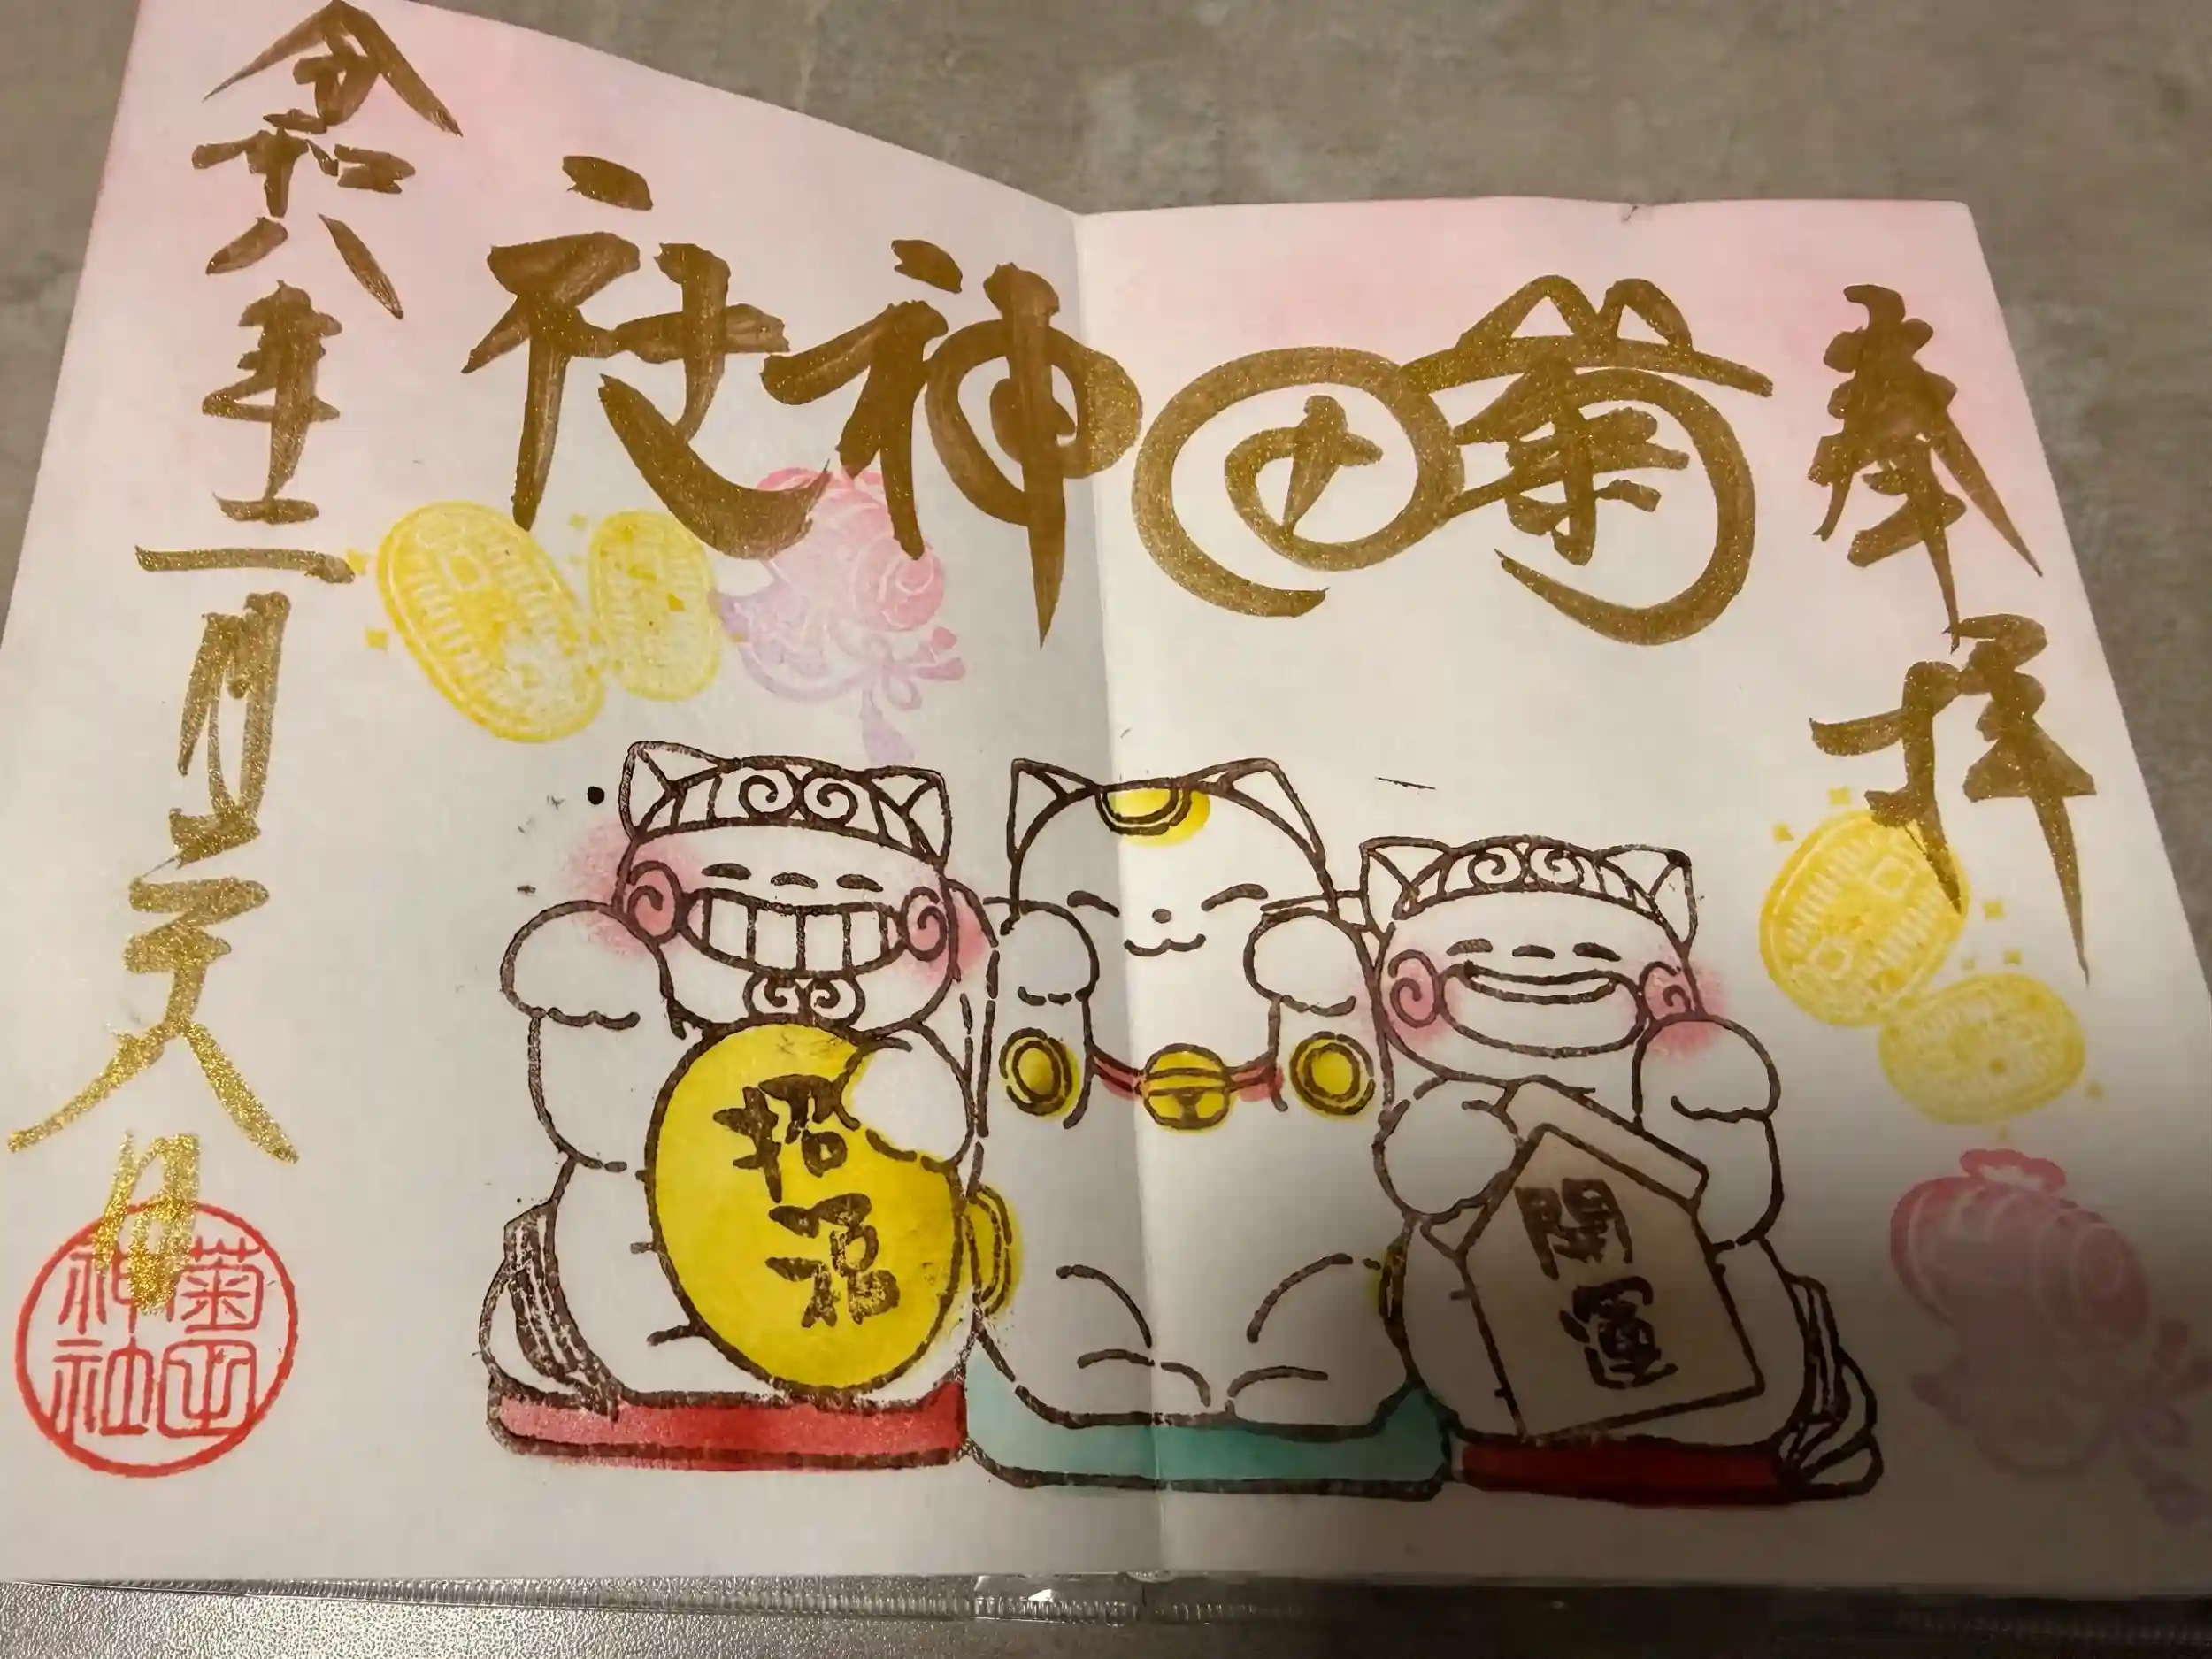 奉拝
菊田神社
令和八年二月
日
招福
開運
菊田
神社